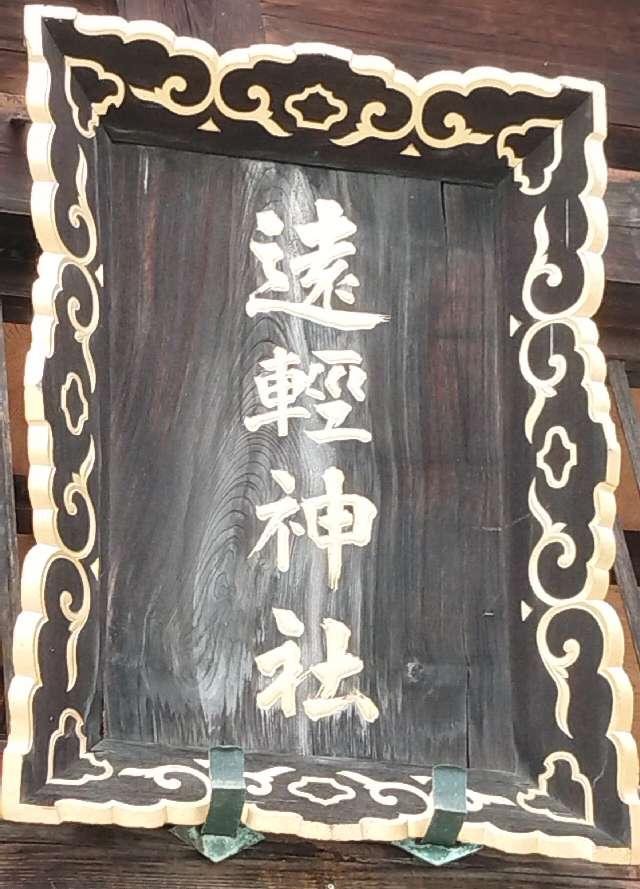 遠輕神社